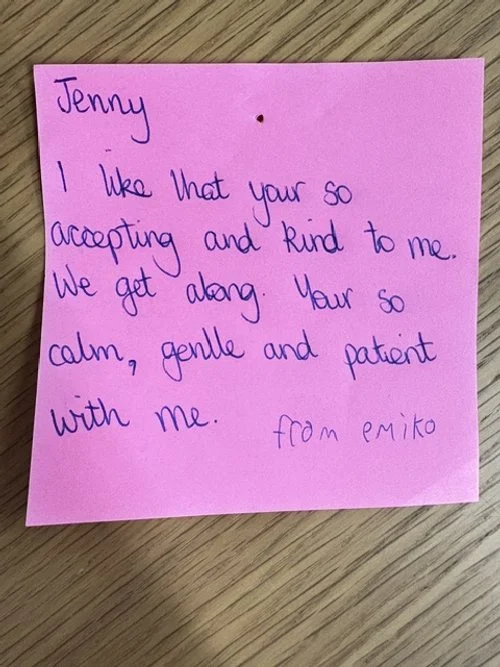 Jenny
I like that your so
accepting and kind to me.
We get along. Your so
calm, gentle and patient
with me.
from emiko